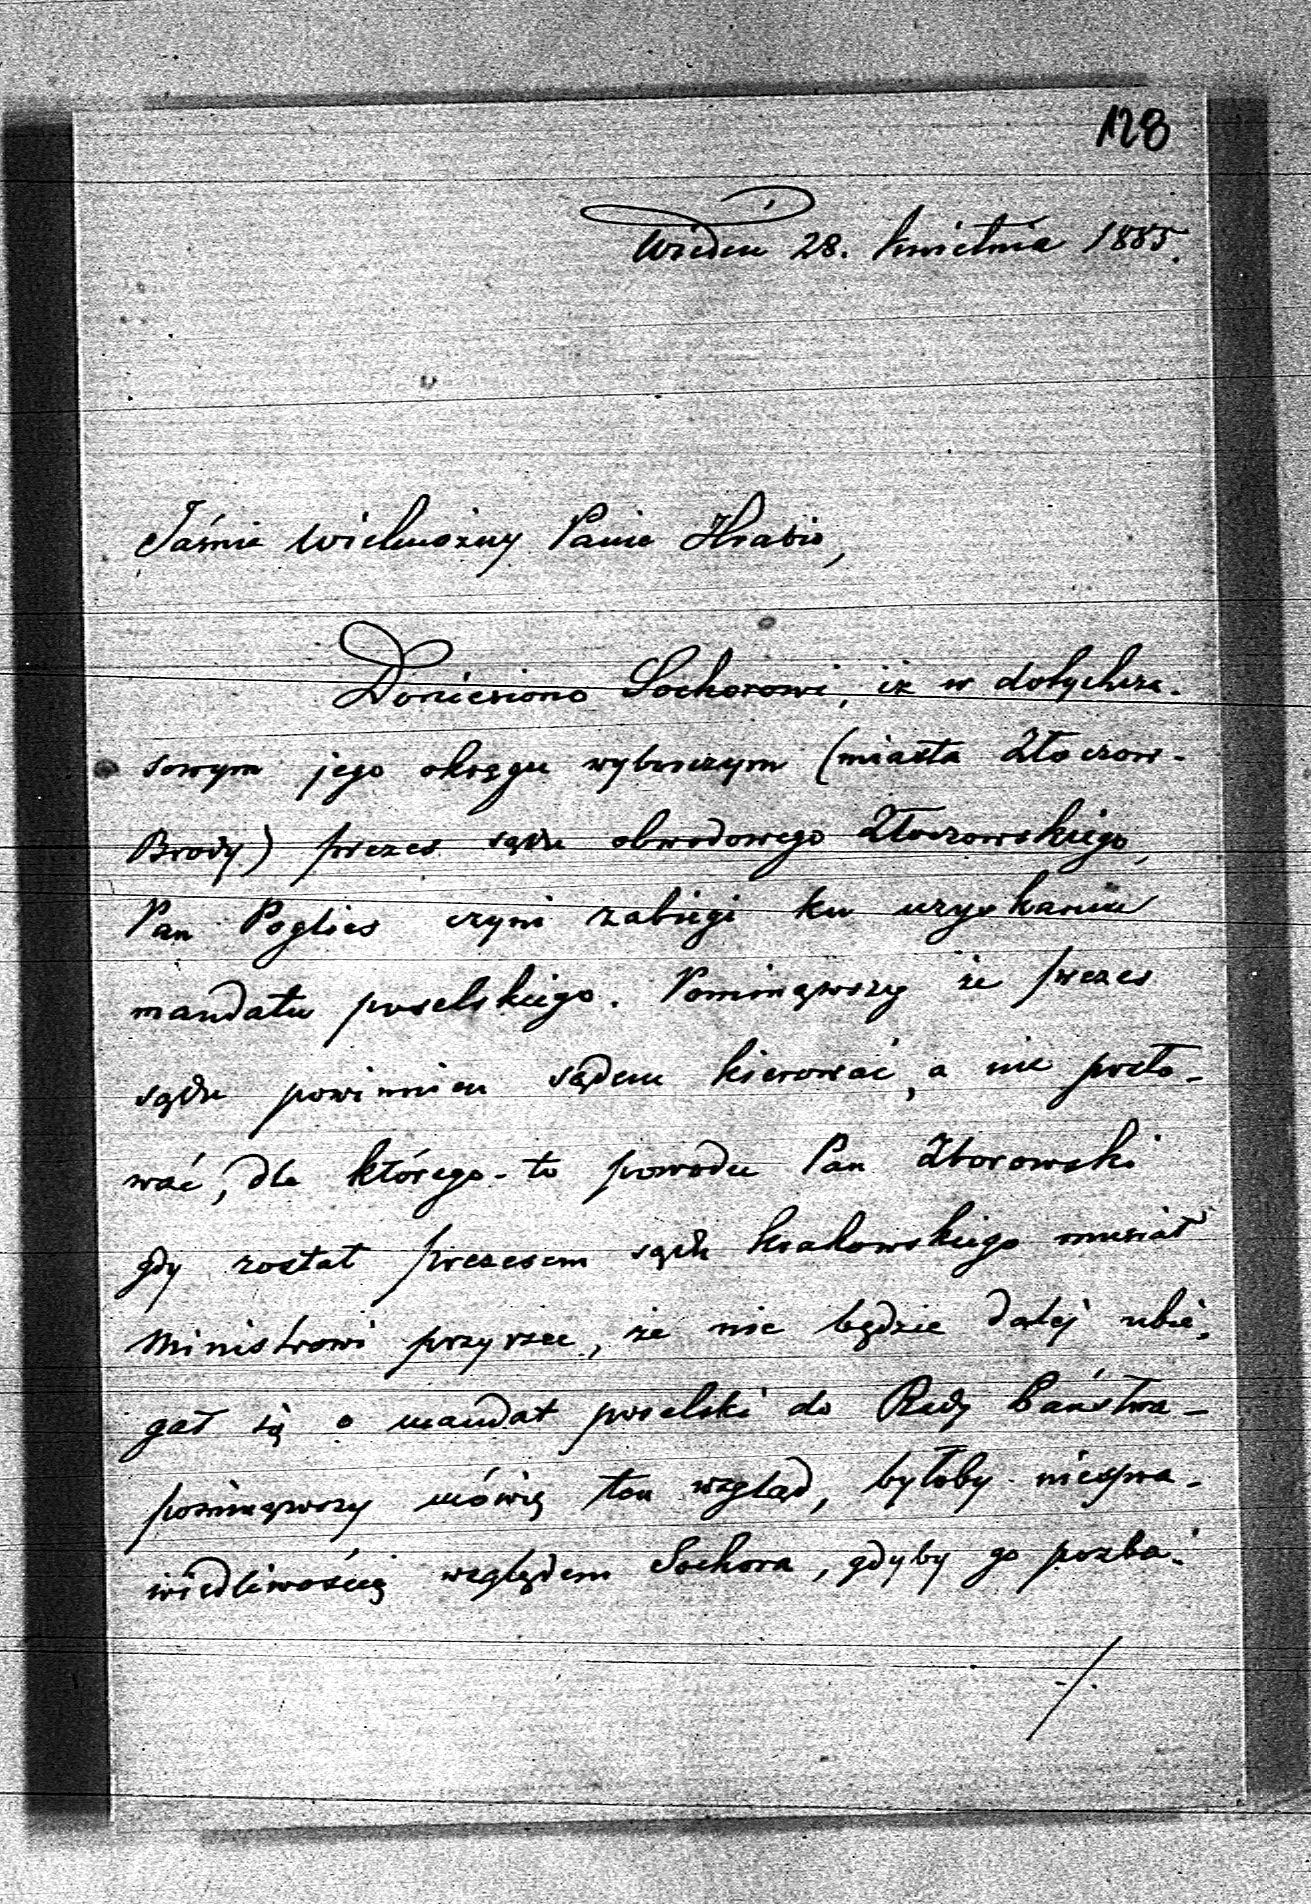 128
Wiedeń 28. kwietnia 1885.
Jaśnie Wielmożny Panie Hrabio,
Doniesiono Sochorowi, iż w dotychcza-
sowym jego okręgu wyborczym (miasta Złoczow-
Brody) prezes sądu obwodowego Złoczowskiego,
Pan Poglies czyni zabiegi ku uzyskaniu
mandatu poselskiego. Pominąwszy że prezes
sądu powinien sądem kierować, a nie posło-
wać, dla którego-to powodu Pan Zborowski
gdy został prezesem sądu krakowskiego musiał
Ministrowi przyrzec, że nie będzie dalej ubie-
gał się o mandat poselski do Rady Państwa -
pominąwszy mówię ten wzgląd, byłoby niespra-
wiedliwością względem Sochora, gdyby go pozba-
./.